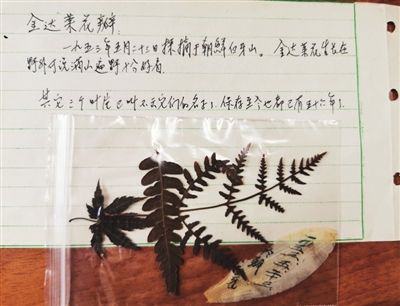 金达莱花瓣
一九五三年五月二十二日採摘于朝鲜白牙山。金达莱花生长在
野外可说满山遍野十分好看
其它三个叶片已叫不出它们的名字了，保存至今也都已有五十六年了。
一九五三年五